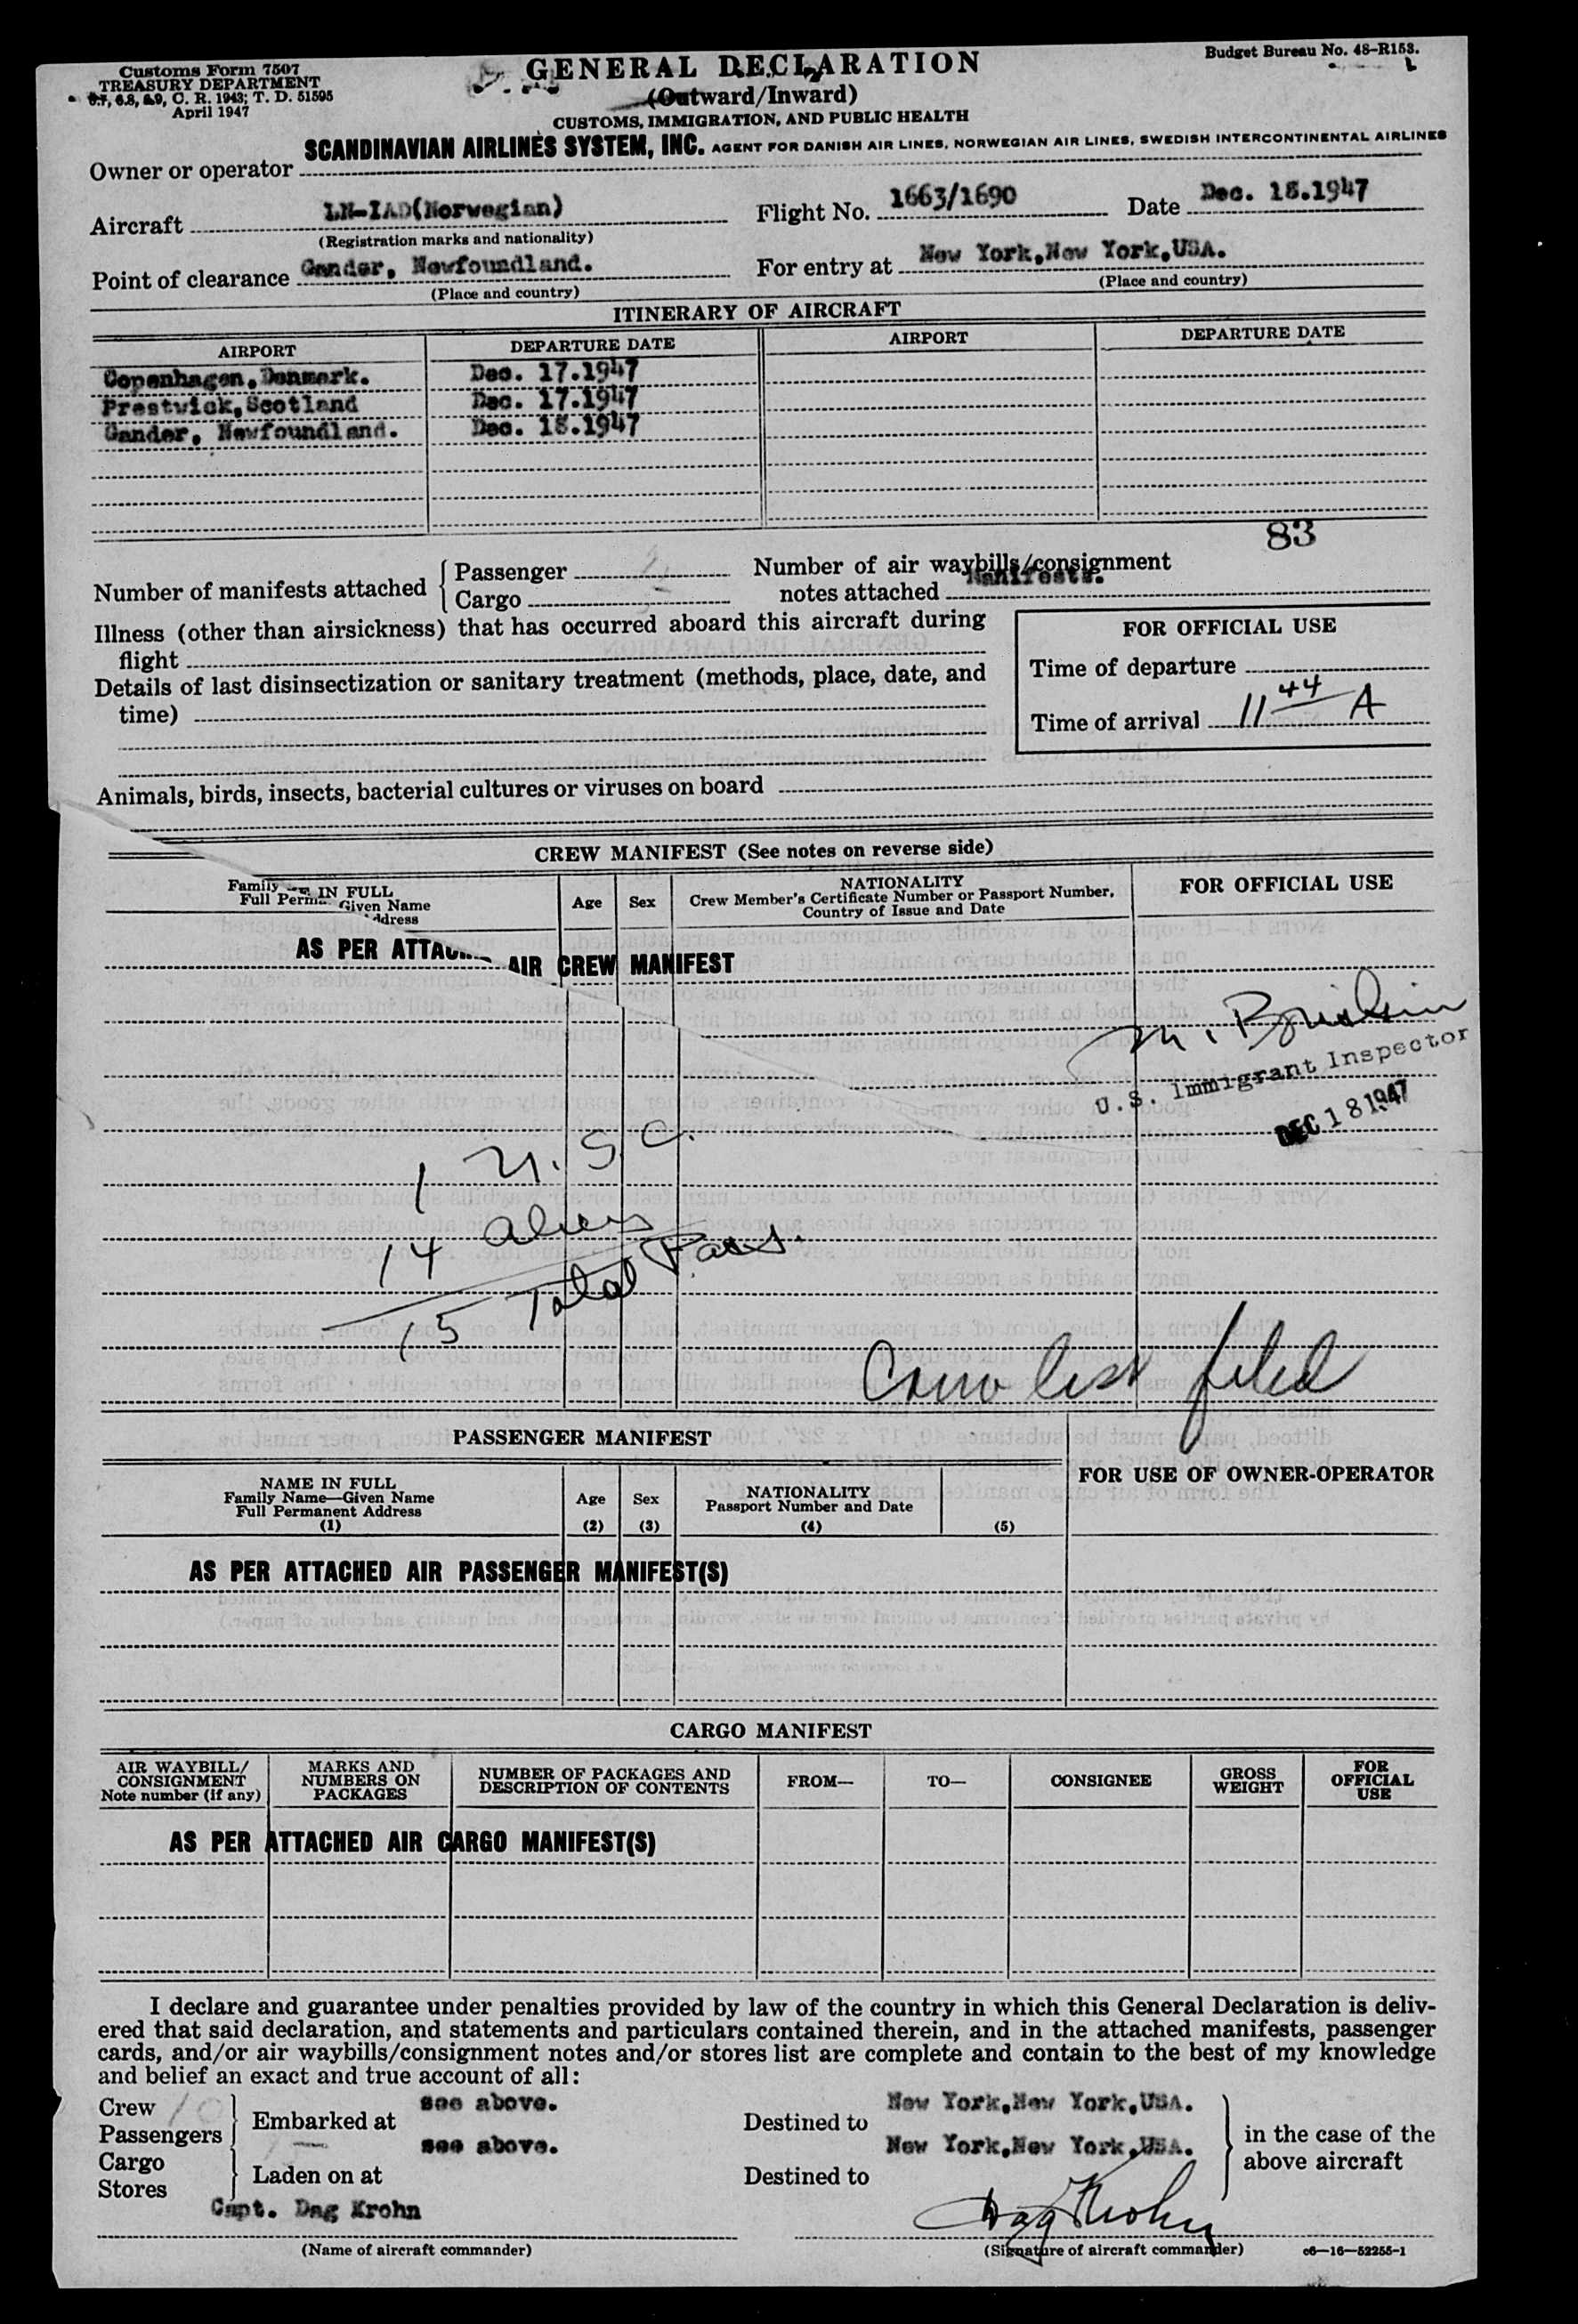 Customs Form 7507
TREASURY DEPARTMENT
6.7, 6.8, 6.9, C. R. 1943; T. D. 51595
April 1947
GENERAL DECLARATION
(Outward/Inward)
CUSTOMS, IMMIGRATION, AND PUBLIC HEALTH
Budget Bureau No. 48-R153.
Owner or operator SCANDINAVIAN AIRLINES SYSTEM, INC. AGENT FOR DANISH AIR LINES, NORWEGIAN AIR LINES, SWEDISH INTERCONTINENTAL AIRLINES
Aircraft LN-IAD(Norwegian) Flight No. 1663/1690 Date Dec. 18.1947
(Registration marks and nationality)
Point of clearance Gander, Newfoundland. For entry at New York,New York,USA.
(Place and country) (Place and country)
ITINERARY OF AIRCRAFT
AIRPORT DEPARTURE DATE AIRPORT DEPARTURE DATE
Copenhagen,Denmark. Dec. 17.1947
Prestwick,Scotland Dec. 17.1947
Gander, Newfoundland. Dec. 18.1947
83
Number of manifests attached { Passenger
Cargo
Number of air waybills/consignment
notes attached Manifests.
Illness (other than airsickness) that has occurred aboard this aircraft during
flight
Details of last disinsectization or sanitary treatment (methods, place, date, and
time)
FOR OFFICIAL USE
Time of departure
Time of arrival 11 44 A
Animals, birds, insects, bacterial cultures or viruses on board
CREW MANIFEST (See notes on reverse side)
IN FULL
Family Given Name
Full Address
Age Sex
NATIONALITY
Crew Member's Certificate Number or Passport Number,
Country of Issue and Date
FOR OFFICIAL USE
AS PER AIR CREW MANIFEST
U.S. Immigrant Inspector
DEC 18 1947
1 U.S.C.
14 Aliens
15 Total Pass.
Crew list filed
PASSENGER MANIFEST
NAME IN FULL
Family Name—Given Name
Full Permanent Address
(1)
Age
(2)
Sex
(3)
NATIONALITY
Passport Number and Date
(4)
(5)
FOR USE OF OWNER-OPERATOR
AS PER ATTACHED AIR PASSENGER MANIFEST(S)
CARGO MANIFEST
AIR WAYBILL/
CONSIGNMENT
Note number (if any)
MARKS AND
NUMBERS ON
PACKAGES
NUMBER OF PACKAGES AND
DESCRIPTION OF CONTENTS
FROM—
TO—
CONSIGNEE
GROSS
WEIGHT
FOR
OFFICIAL
USE
AS PER ATTACHED AIR CARGO MANIFEST(S)
I declare and guarantee under penalties provided by law of the country in which this General Declaration is deliv-
ered that said declaration, and statements and particulars contained therein, and in the attached manifests, passenger
cards, and/or air waybills/consignment notes and/or stores list are complete and contain to the best of my knowledge
and belief an exact and true account of all:
Crew 10
Passengers } Embarked at see above. Destined to New York,New York,USA.
Cargo
Stores } Laden on at see above. Destined to New York,New York,USA.
} in the case of the
above aircraft
Capt. Dag Krohn
Dag Krohn
(Name of aircraft commander) (Signature of aircraft commander) c6—16—52255-1